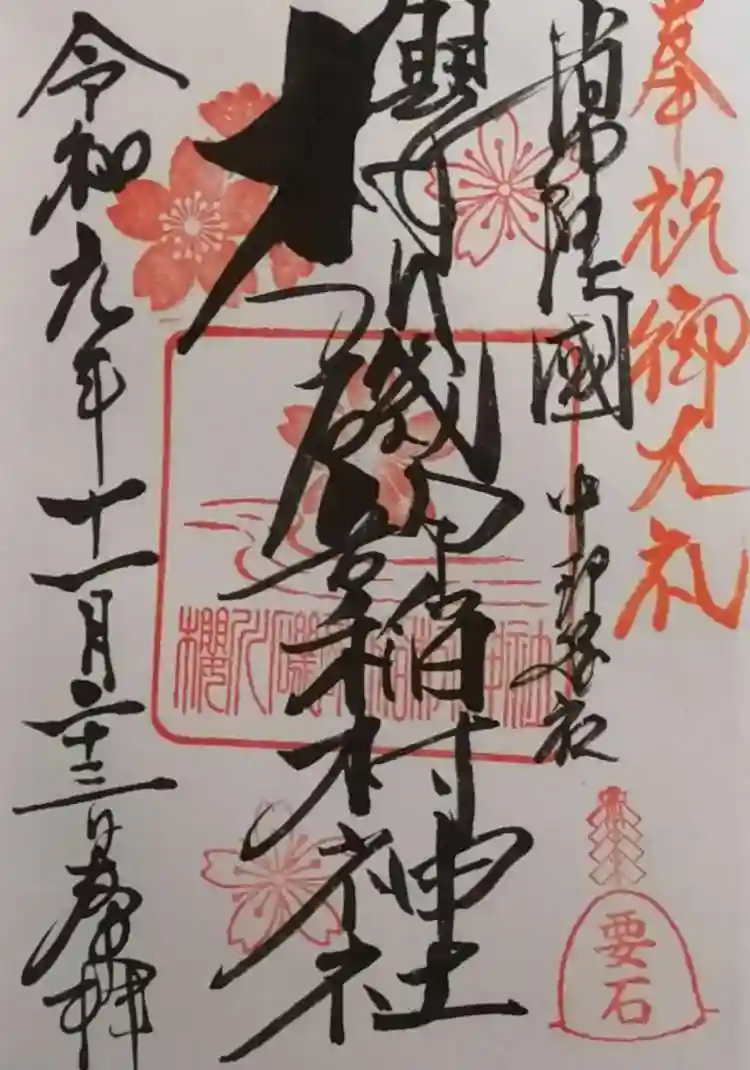 奉祝御大礼
常陸國 中郡総社
櫻川磯部稲村神社
令和元年十一月二十三日奉拝
櫻川磯部稲村神社
要石